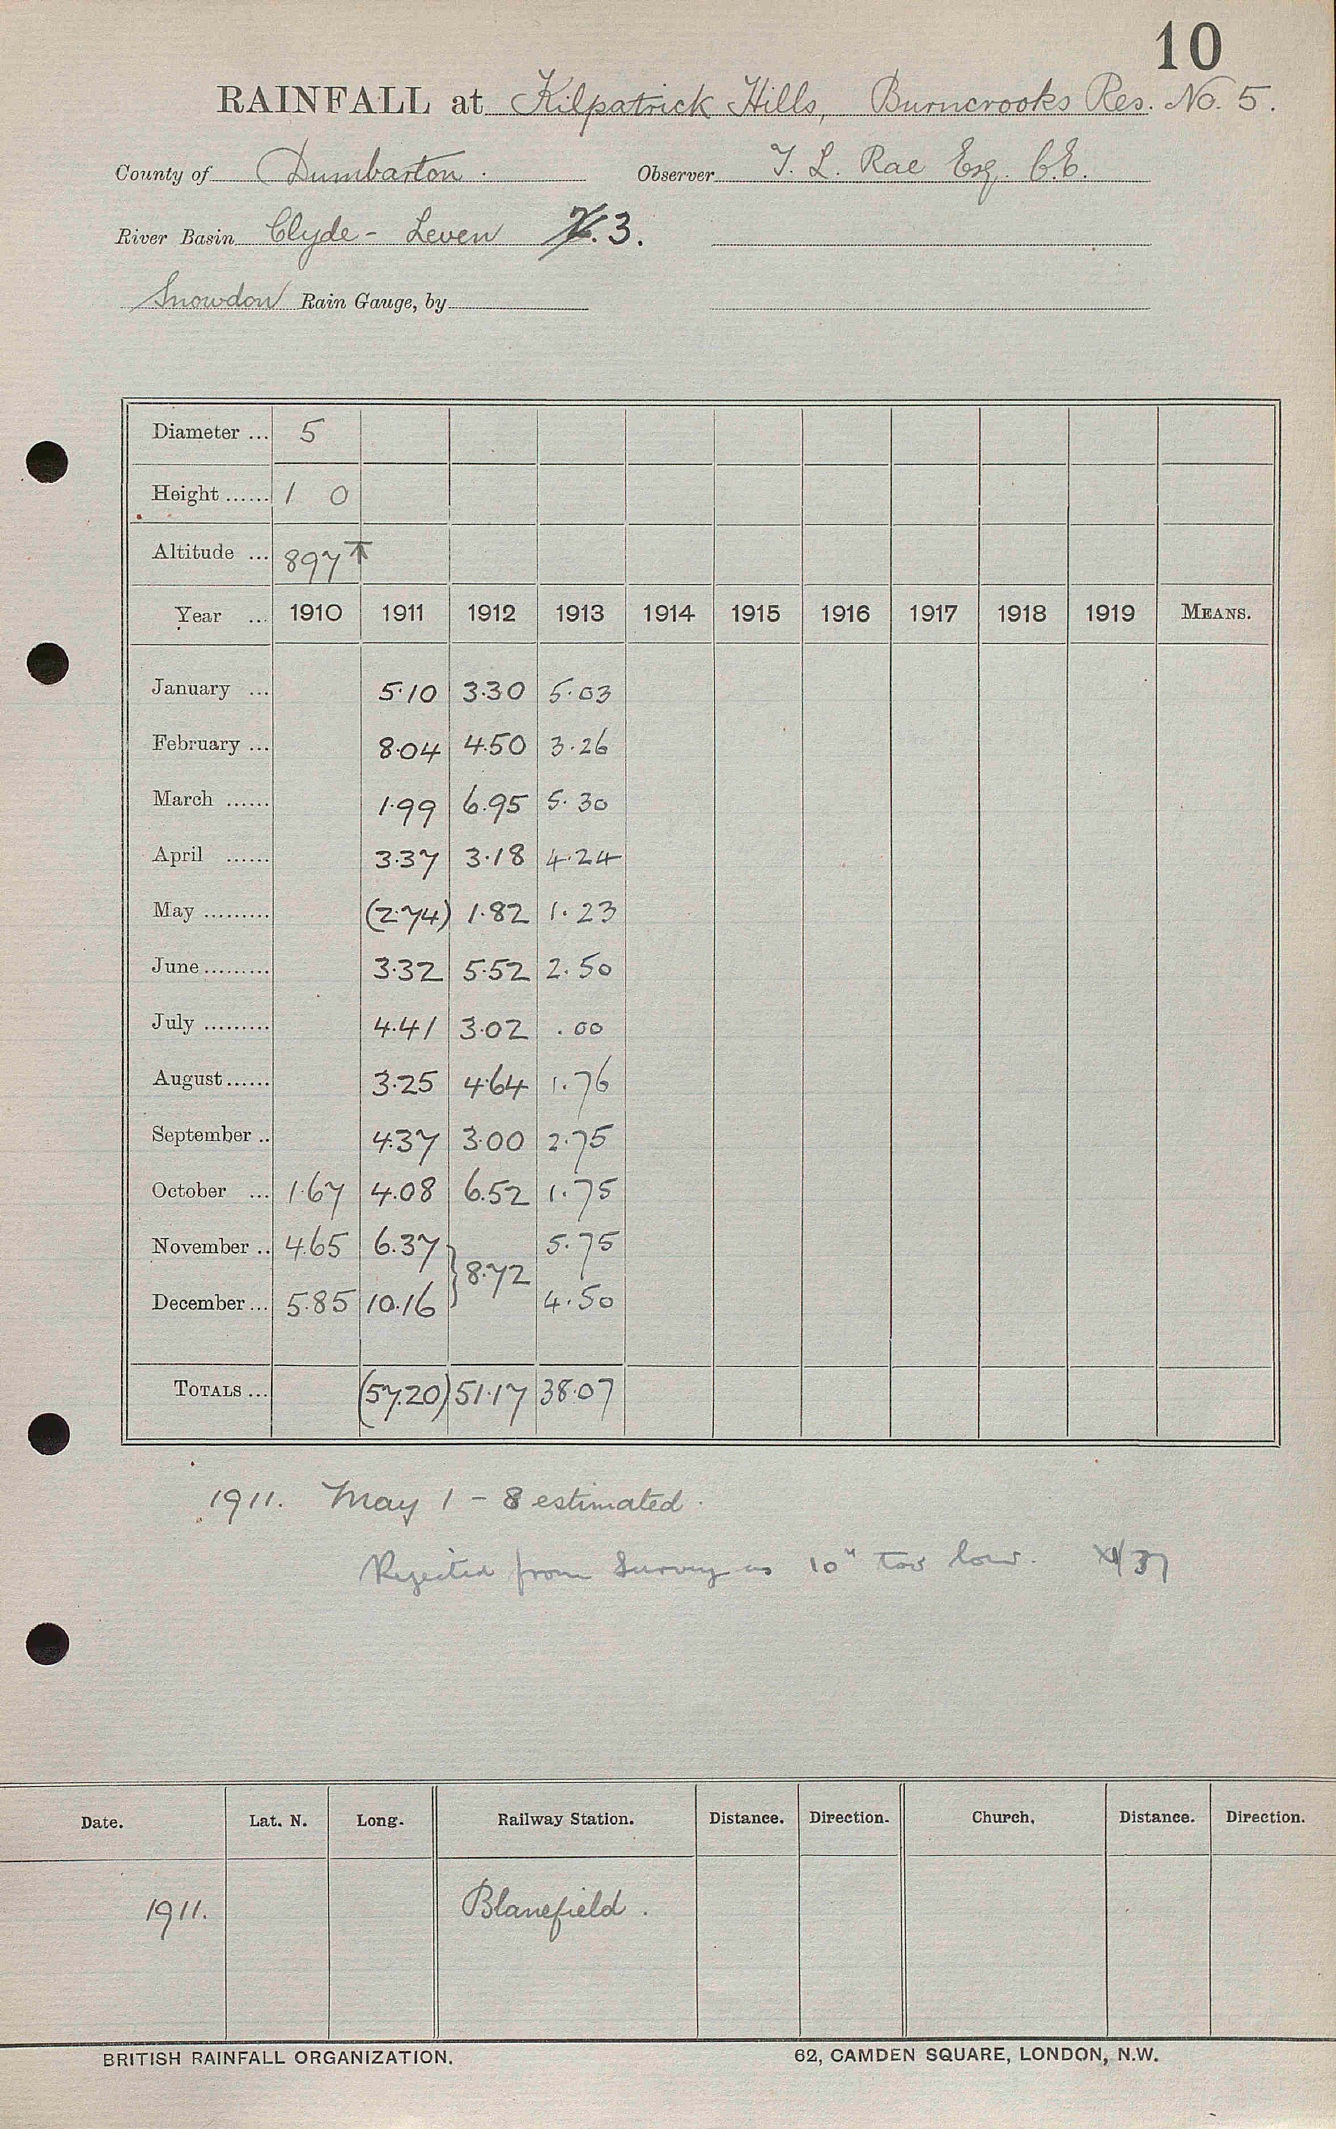 10
RAINFALL at Kilpatrick Hills, Burncrooks Res. No. 5.
County of Dumbarton. Observer T. L. Rae Esq. C.E.
River Basin Clyde - Leven 3.
Snowdon Rain Gauge, by
Diameter ... 5
Height ...... 1 0
Altitude ... 897 T
Year ... 1910 1911 1912 1913 1914 1915 1916 1917 1918 1919 MEANS.
January ... 5.10 3.30 5.03
February ... 8.04 4.50 3.26
March ...... 1.99 6.95 5.30
April ...... 3.37 3.18 4.24
May ......... (2.74) 1.82 1.23
June ......... 3.32 5.52 2.50
July ......... 4.41 3.02 .00
August ...... 3.25 4.64 1.76
September .. 4.37 3.00 2.75
October ... 1.67 4.08 6.52 1.75
November .. 4.65 6.37 5.75
} 8.72
December ... 5.85 10.16 4.50
TOTALS ... (57.20) 51.17 38.07
1911. May 1 - 8 estimated.
Rejected from Survey as 10" too low. XI/37
Date. Lat. N. Long. Railway Station. Distance. Direction. Church. Distance. Direction.
1911. Blanefield.
BRITISH RAINFALL ORGANIZATION. 62, CAMDEN SQUARE, LONDON, N.W.